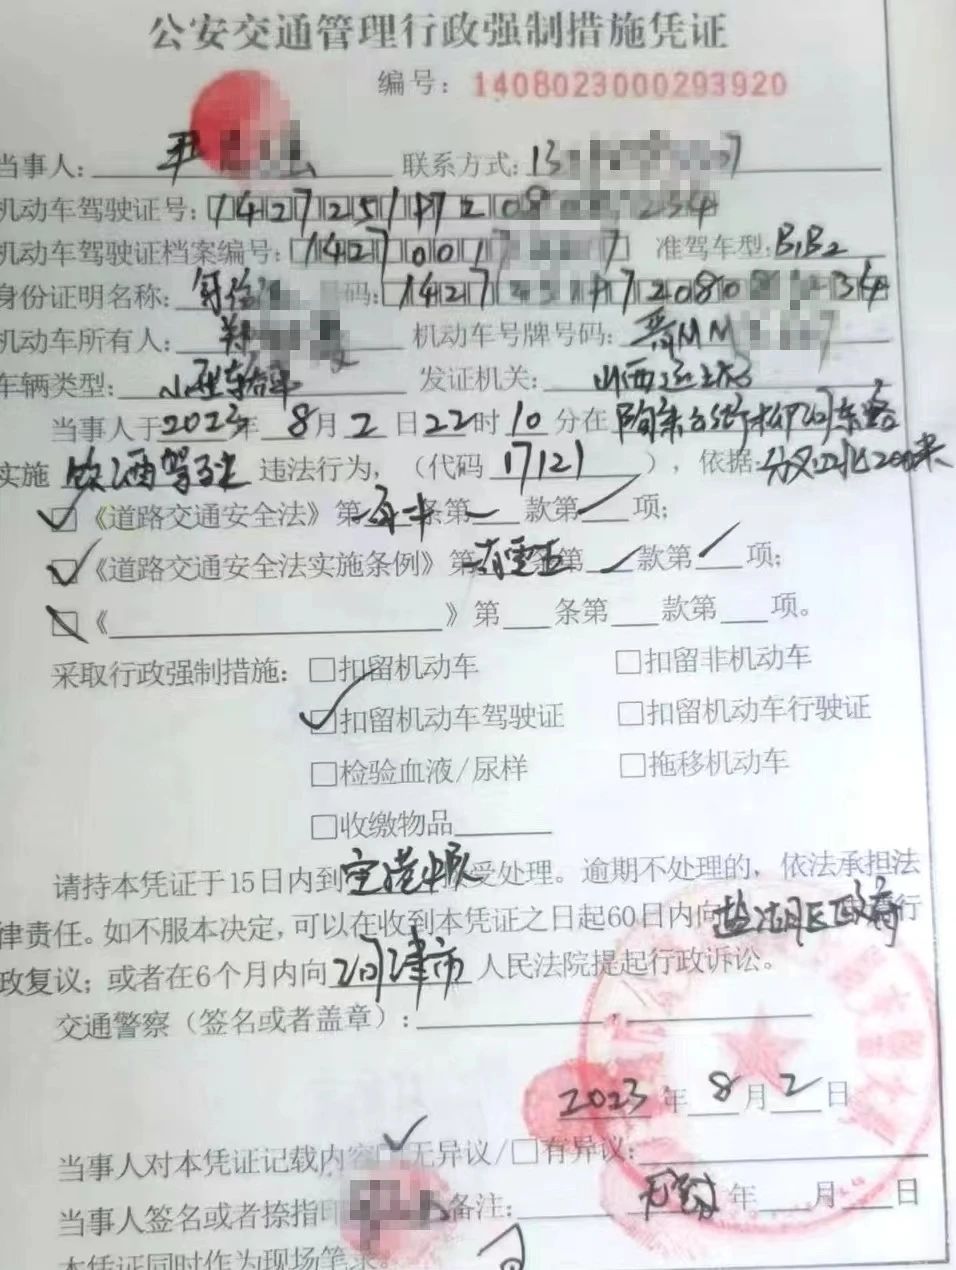 公安交通管理行政强制措施凭证
编号：1408023000293920
当事人： 联系方式：13 7
机动车驾驶证号：14272511720 234
机动车驾驶证档案编号：1427001 7 准驾车型：B1B2
身份证明名称： 码：1427 172080 34
机动车所有人： 机动车号牌号码：晋MM 7
车辆类型：小型轿车 发证机关：山西运城
当事人于2023年8月2日22时10分在
实施饮酒驾驶违法行为，（代码17121），依据：
《道路交通安全法》第 条第一款第 项；
《道路交通安全法实施条例》第一百零五条第 款第 项；
《 》第 条第 款第 项。
采取行政强制措施：□扣留机动车 □扣留非机动车
扣留机动车驾驶证 □扣留机动车行驶证
□检验血液/尿样 □拖移机动车
□收缴物品
请持本凭证于15日内到空港中队受处理。逾期不处理的，依法承担法
律责任。如不服本决定，可以在收到本凭证之日起60日内向盐湖区政府行
政复议；或者在6个月内向河津市人民法院提起行政诉讼。
交通警察（签名或者盖章）：
2023年8月2日
当事人对本凭证记载内容□无异议/□有异议：
当事人签名或者捺指印 备注： 年 月 日
本凭证同时作为现场笔录。